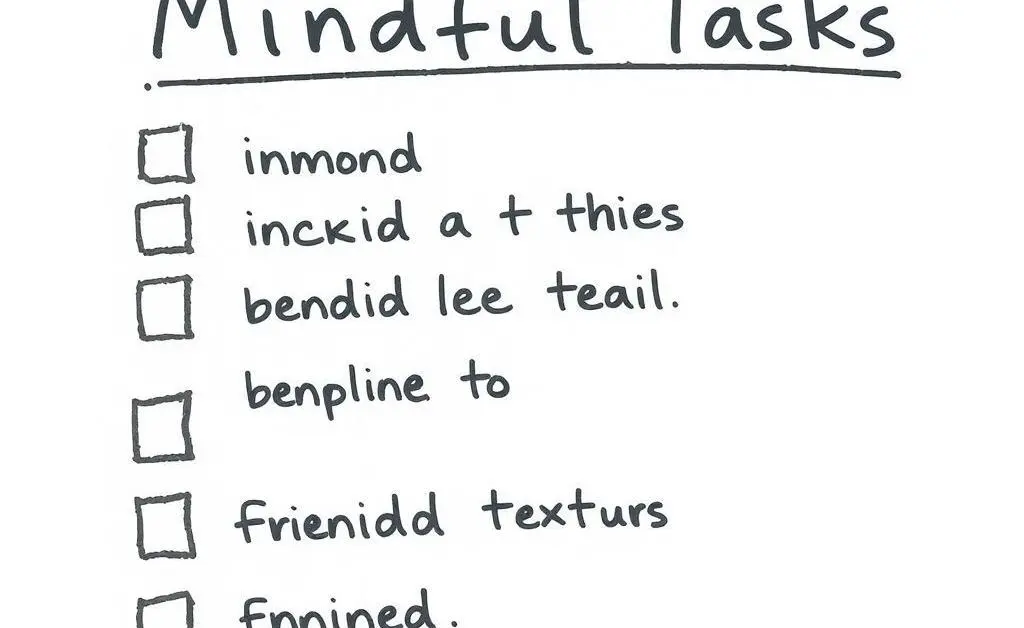 Mindful Tasks
inmond
inckid a t thies
bendid lee teail.
benpline to
frienidd texturs
fnnined.